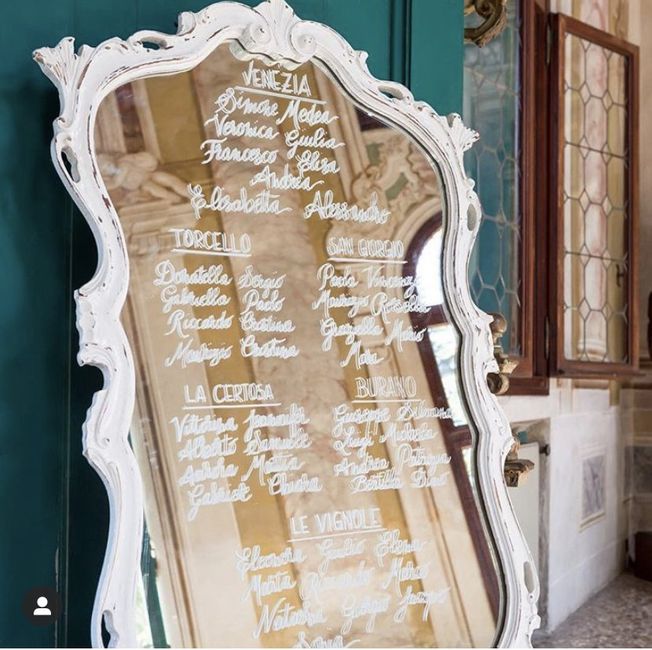 VENEZIA
Simone Medea
Veronica Giulia
Francesco Elisa
Andrea
Elisabetta Alessandro
TORCELLO
Donatella Sergio
Gabriella Paolo
Riccardo Cristina
Maurizio Cristina
SAN GIORGIO
Paola Vincenzo
Maurizio Rossella
Graziella Mario
Mara
LA CERTOSA
Vittorina Jennifer
Alberto Samuele
Mattia
Gabriele Chiara
BURANO
Giuseppe Silvana
Luigi Michela
Andrea Patrizia
LE VIGNOLE
Eleonora Giulio Elena
Mattia Riccardo Mario
Natascia Giorgio Jacopo
Sonia